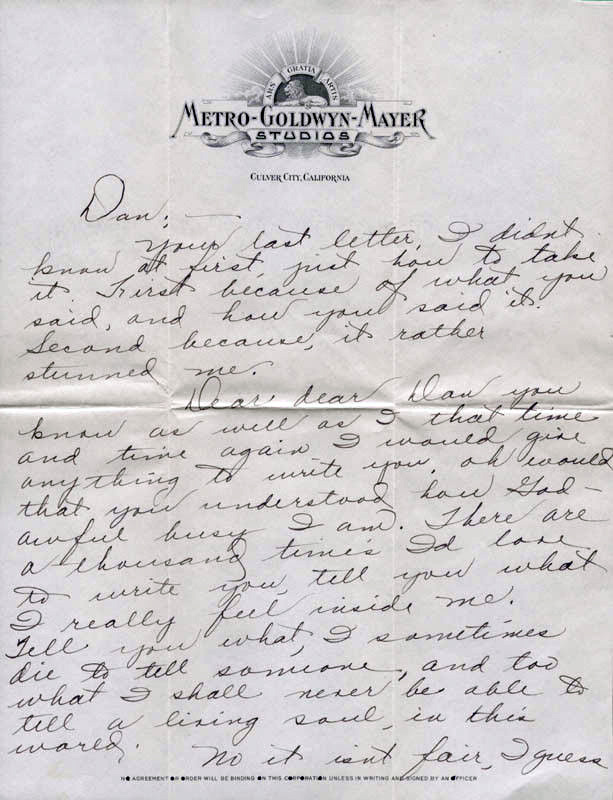 ARS GRATIA ARTIS
METRO-GOLDWYN-MAYER
STUDIOS
CULVER CITY, CALIFORNIA
Dan; —
Your last letter, I didnt
know at first just how to take
it. First because of what you
said, and how you said it.
Second because, it rather
stunned me.
Dear dear Dan you
know as well as I that time
and time again I would give
anything to write you, oh would
that you understood how God-
awful busy I am. There are
a thousand times Id love
to write you, tell you what
I really feel inside me.
Tell you what, I sometimes
die to tell someone, and too
what I shall never be able to
tell a living soul, in this
world.
No it isnt fair, I guess
NO AGREEMENT OR ORDER WILL BE BINDING ON THIS CORPORATION UNLESS IN WRITING AND SIGNED BY AN OFFICER